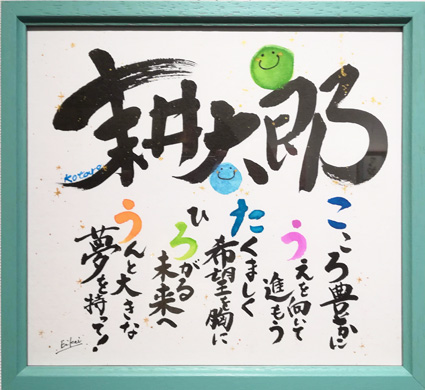 耕太郎
Kotaro
こころ豊かに
うえを向いて
進もう
たくましく
希望を胸に
ひろがる
未来へ
うんと大きな
夢を持って!